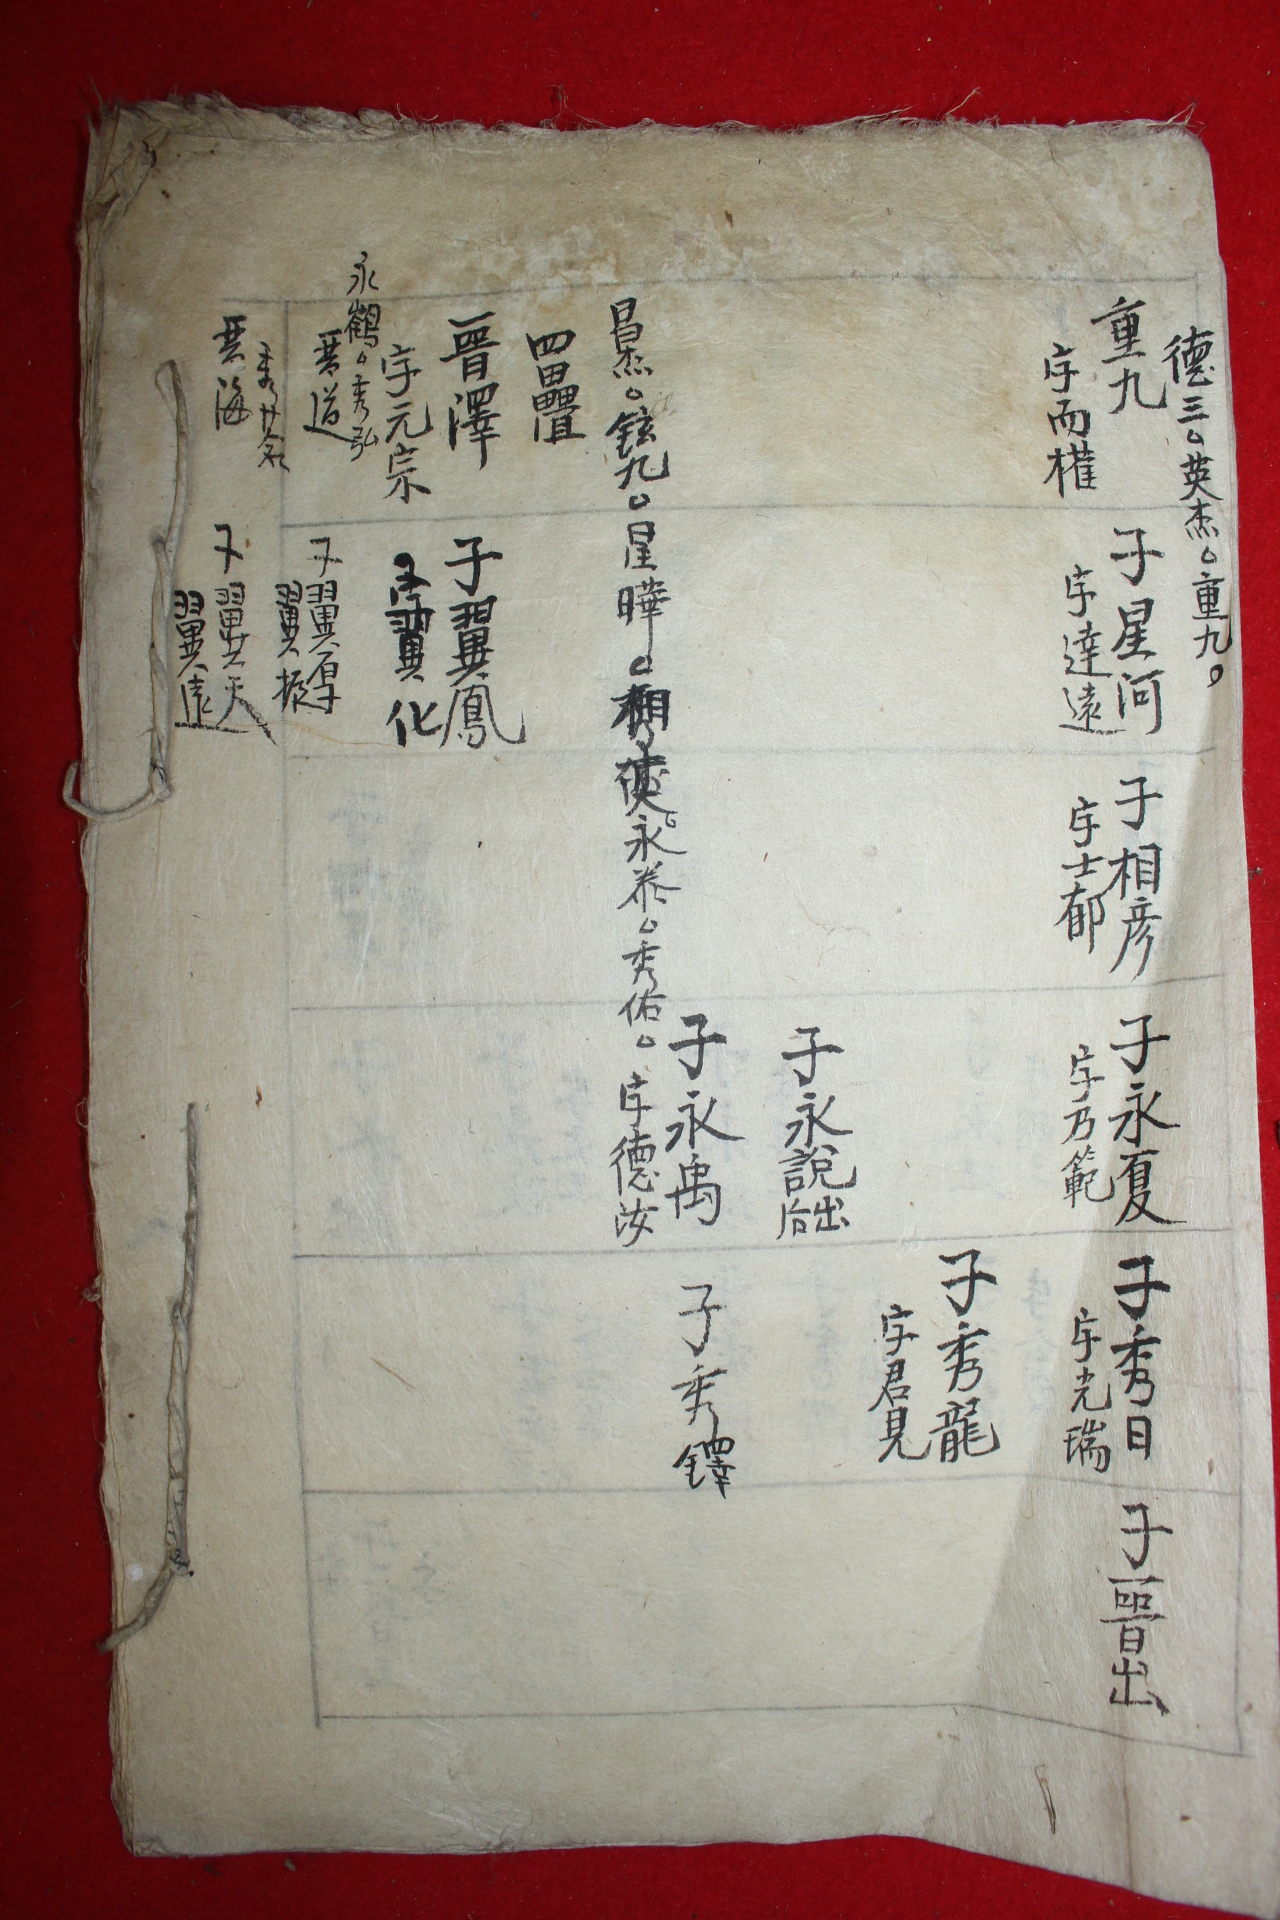 德三。英杰。重九。
重九
字而權
子星河
字達遠
子相彦
字士郁
子永夏
字乃範
子秀日
字光瑞
子晉出
子秀龍
字君見
子永說
后出
子永禹
字德汝
子秀鐸
昌杰。鉉九。星曄。相奭。永泰。秀佑。
四疊
晉澤
字元宗
子翼鳳
子翼化
永鶴。秀弘
晉道
子翼厚
翼振
晉海
子翼天
翼遠